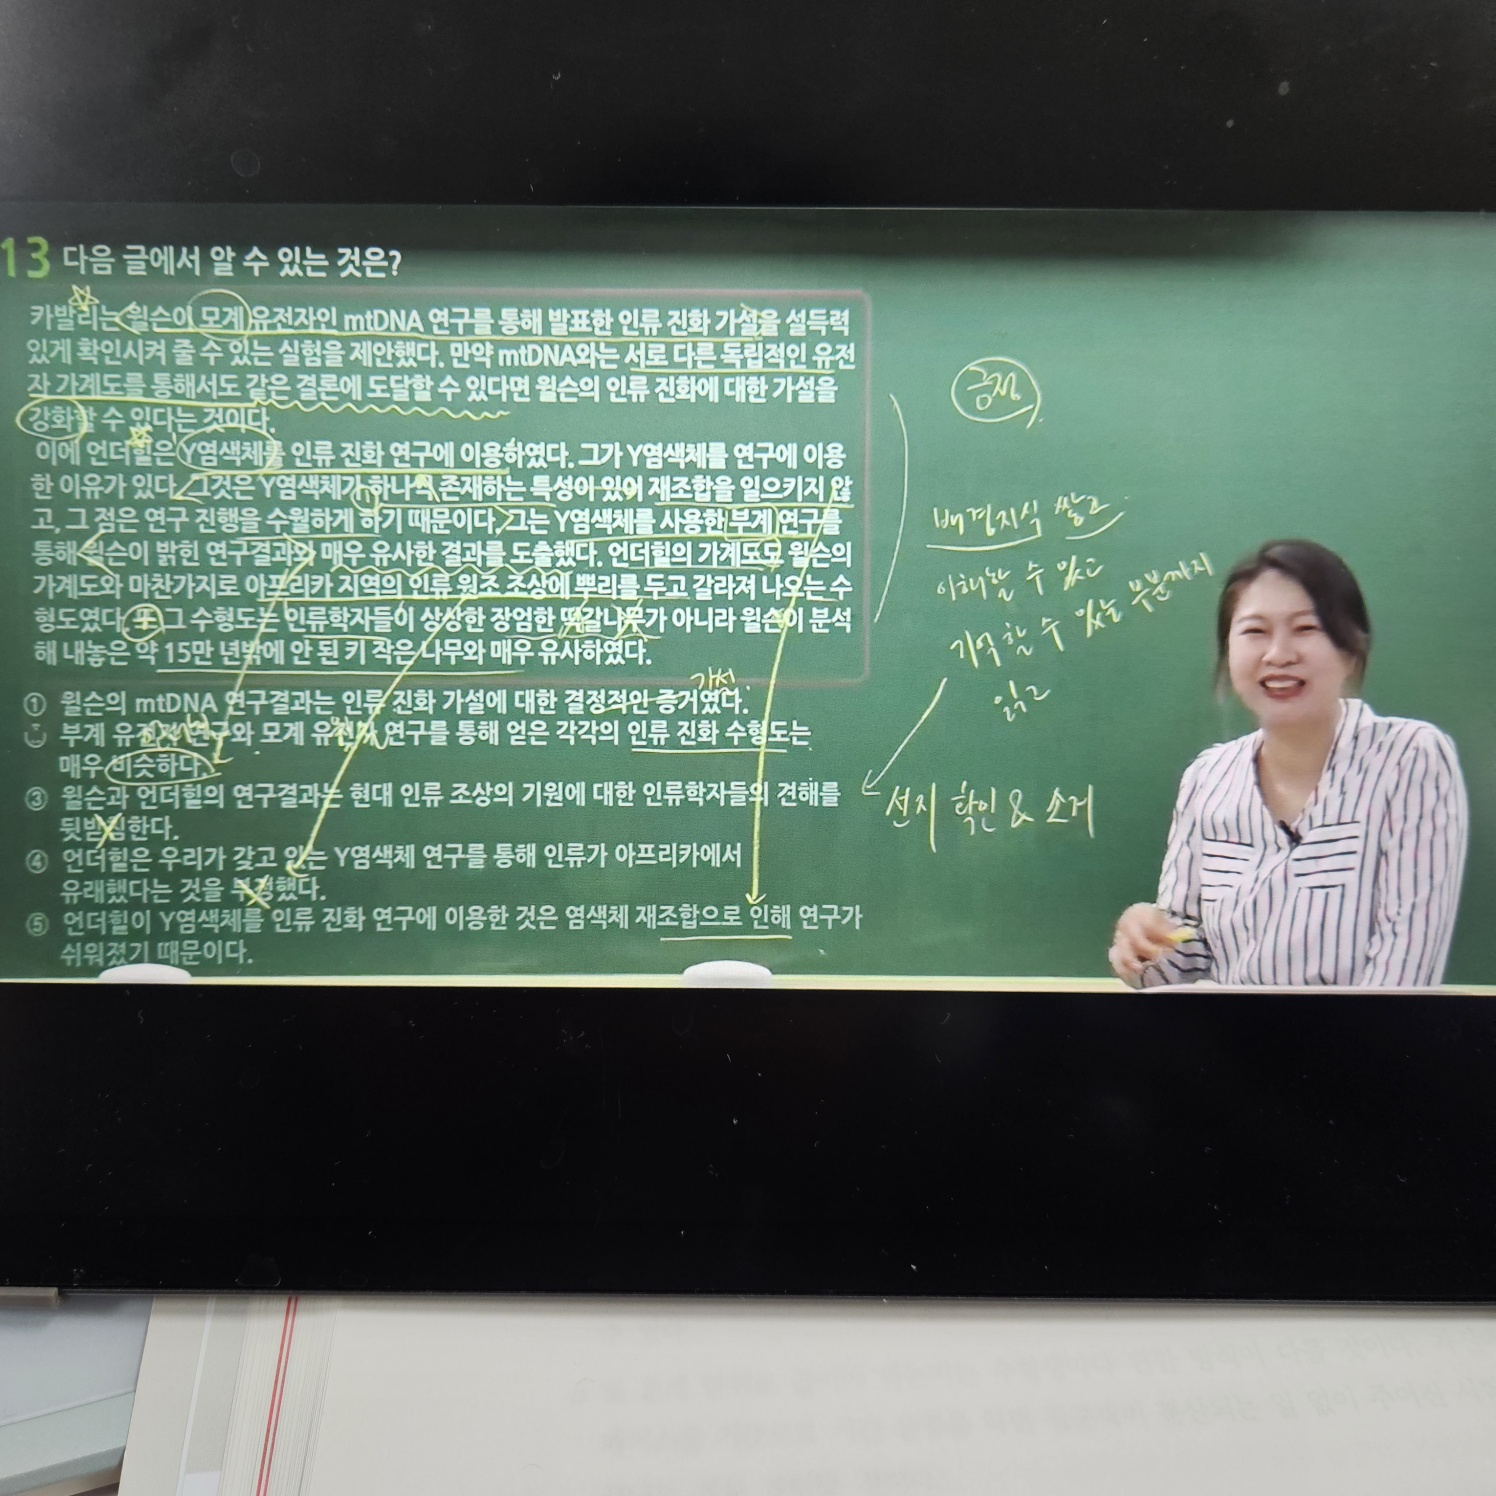 13 다음 글에서 알 수 있는 것은?
카발리는 윌슨이 모계 유전자인 mtDNA 연구를 통해 발표한 인류 진화 가설을 설득력
있게 확인시켜 줄 수 있는 실험을 제안했다. 만약 mtDNA와는 서로 다른 독립적인 유전
자 가계도를 통해서도 같은 결론에 도달할 수 있다면 윌슨의 인류 진화에 대한 가설을
강화할 수 있다는 것이다.
이에 언더힐은 Y염색체를 인류 진화 연구에 이용하였다. 그가 Y염색체를 연구에 이용
한 이유가 있다. 그것은 Y염색체가 하나씩 존재하는 특성이 있어 재조합을 일으키지 않
고, 그 점은 연구 진행을 수월하게 하기 때문이다. 그는 Y염색체를 사용한 부계 연구를
통해 윌슨이 밝힌 연구결과와 매우 유사한 결과를 도출했다. 언더힐의 가계도도 윌슨의
가계도와 마찬가지로 아프리카 지역의 인류 원조 조상에 뿌리를 두고 갈라져 나오는 수
형도였다. 또 그 수형도는 인류학자들이 상상한 장엄한 떡갈나무가 아니라 윌슨이 분석
해 내놓은 약 15만 년밖에 안 된 키 작은 나무와 매우 유사하였다.
가설.
① 윌슨의 mtDNA 연구결과는 인류 진화 가설에 대한 결정적인 증거였다.
부계 유전자 연구와 모계 유전자 연구를 통해 얻은 각각의 인류 진화 수형도는
매우 비슷하다.
③ 윌슨과 언더힐의 연구결과는 현대 인류 조상의 기원에 대한 인류학자들의 견해를
뒷받침한다.
④ 언더힐은 우리가 갖고 있는 Y염색체 연구를 통해 인류가 아프리카에서
유래했다는 것을 부정했다.
⑤ 언더힐이 Y염색체를 인류 진화 연구에 이용한 것은 염색체 재조합으로 인해 연구가
쉬워졌기 때문이다.
긍정
배경지식 쌓고
이해할 수 있고
기억할 수 있는 부분까지
읽고
선지 확인 & 소거